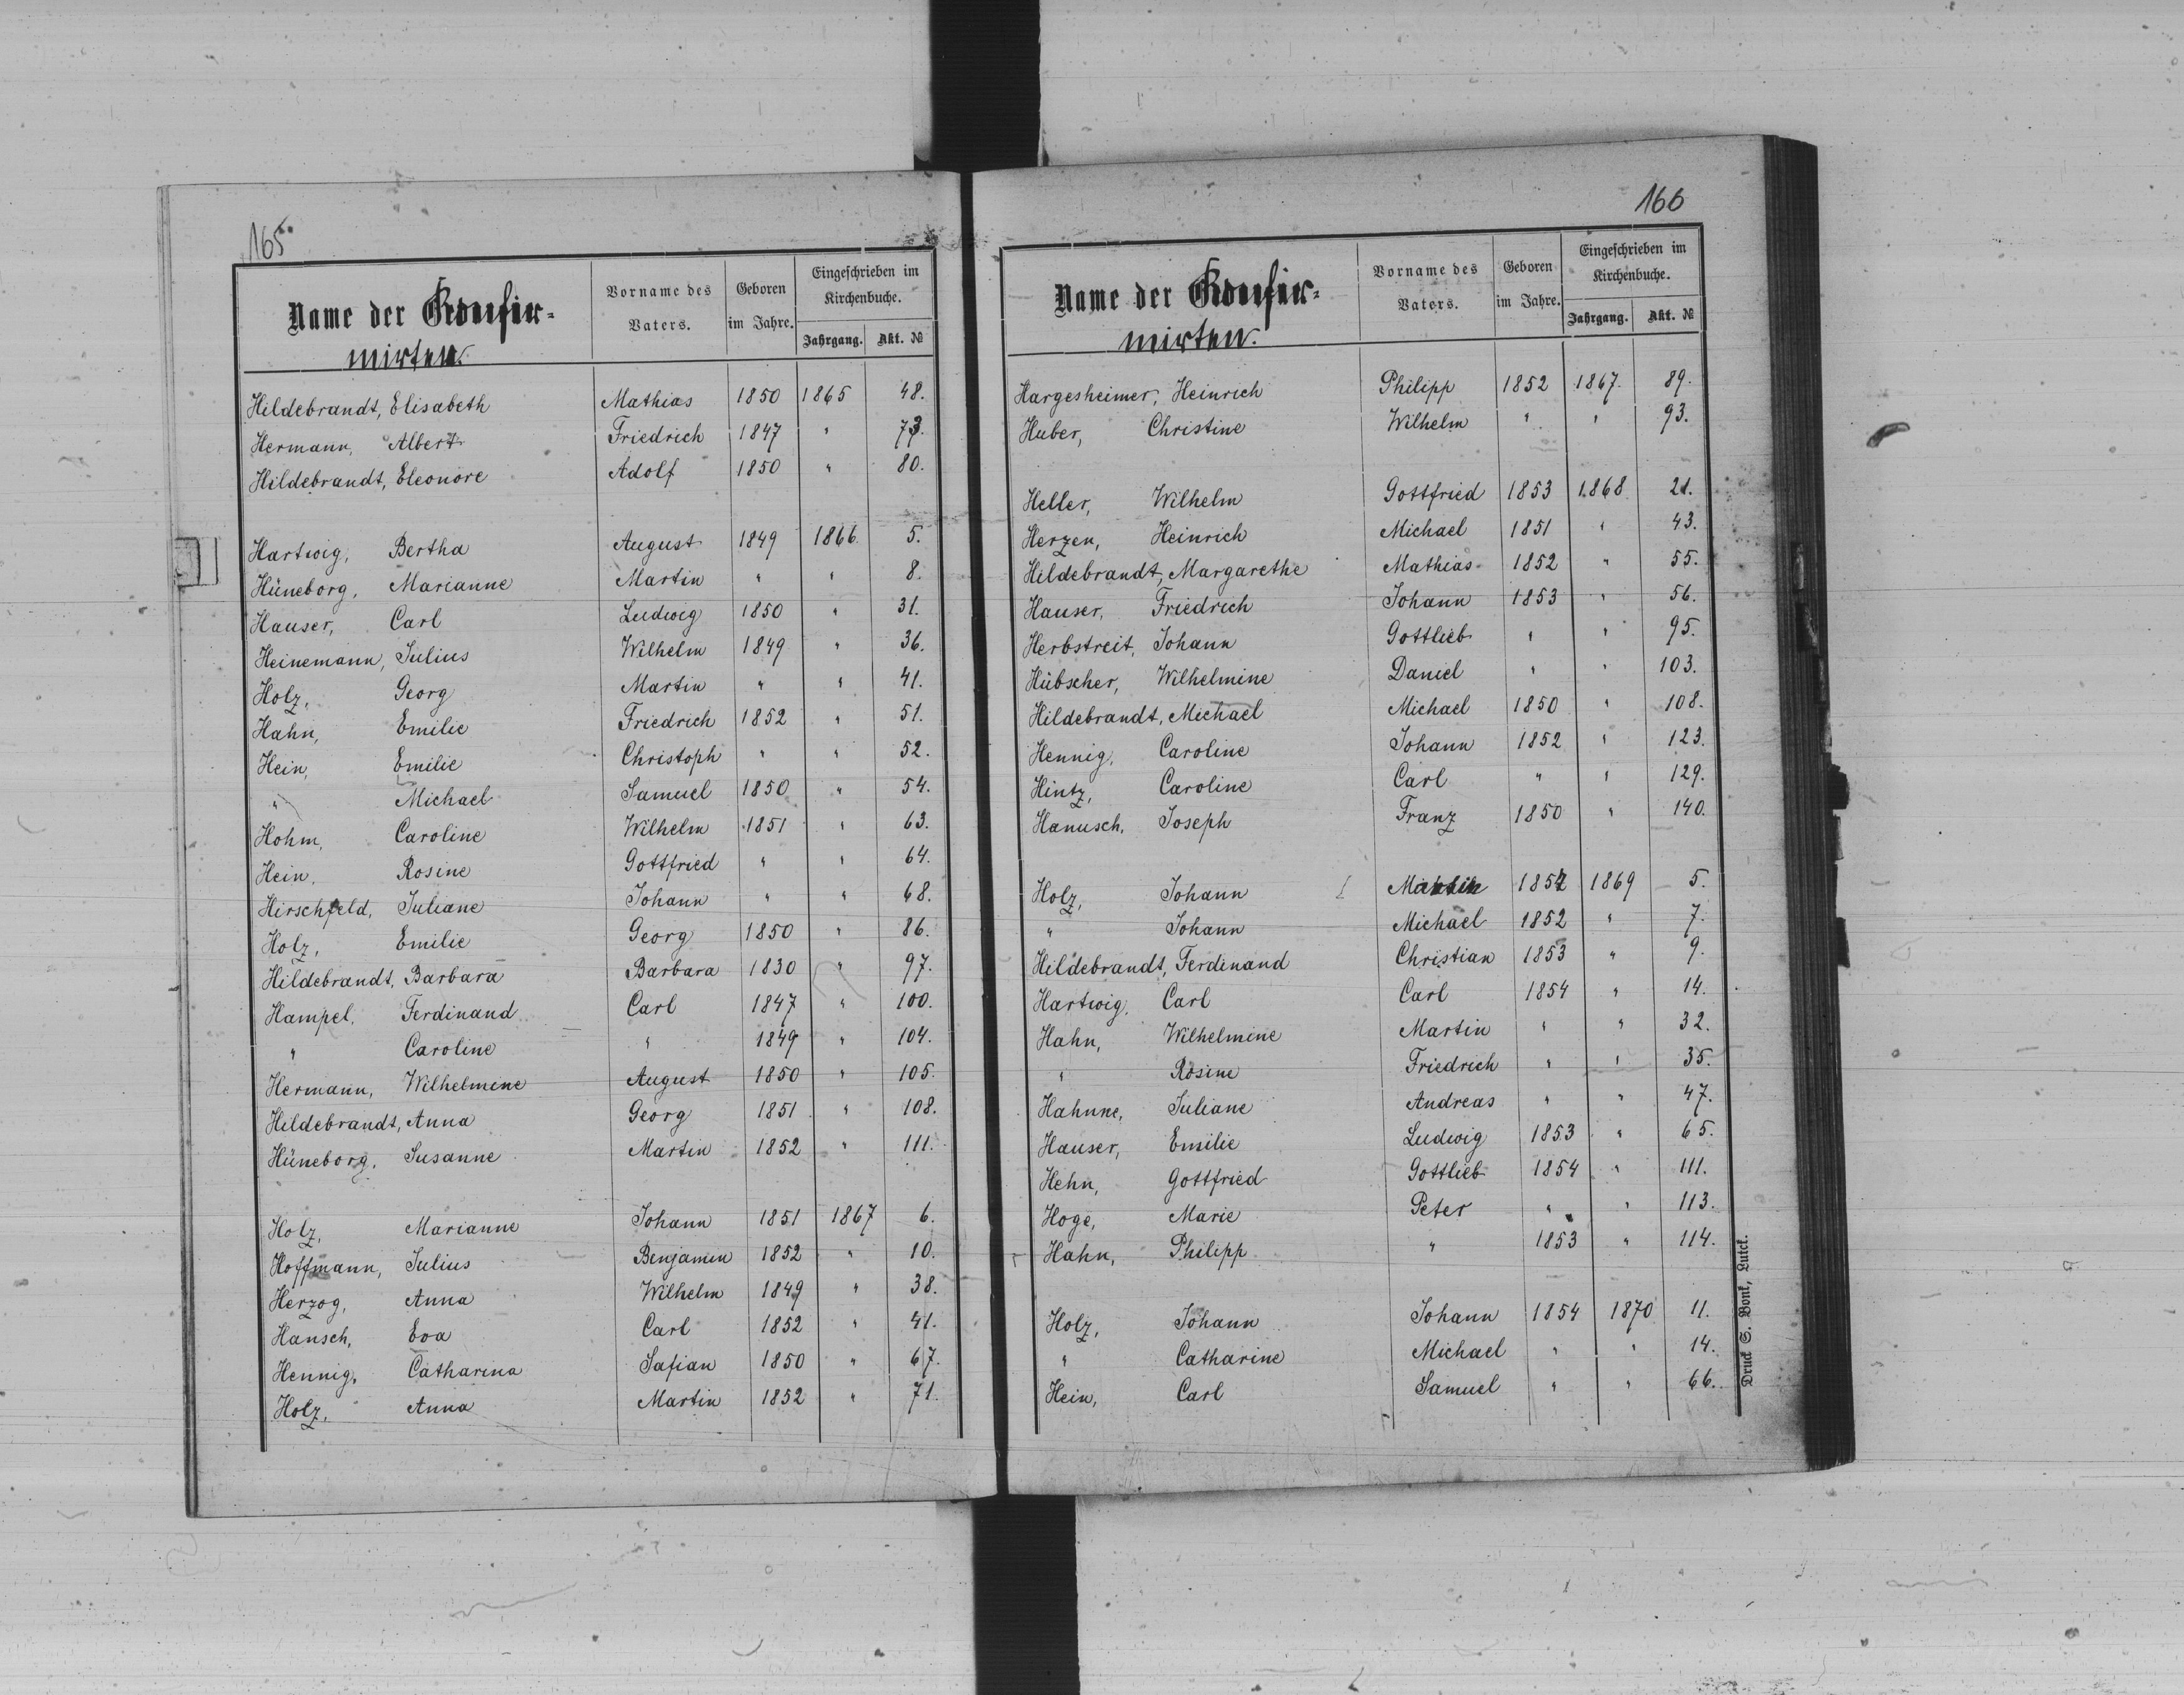 165
Name der Konfir-
mirten.
Vorname des Vaters.
Geboren im Jahre.
Eingeschrieben im Kirchenbuche.
Jahrgang. Akt. №
Hildebrandt, Elisabeth Mathias 1850 1865 48.
Hermann, Albert Friedrich 1847 " 73.
Hildebrandt, Eleonore Adolf 1850 " 80.
Hartwig, Bertha August 1849 1866 5.
Hüneborg, Marianne Martin " " 8.
Hauser, Carl Ludwig 1850 " 31.
Heinemann, Julius Wilhelm 1849 " 36.
Holz, Georg Martin " " 41.
Hahn, Emilie Friedrich 1852 " 51.
Hein, Emilie Christoph " " 52.
" Michael Samuel 1850 " 54.
Hohm, Caroline Wilhelm 1851 " 63.
Hein, Rosine Gottfried " " 64.
Hirschfeld, Juliane Johann " " 68.
Holz, Emilie Georg 1850 " 86.
Hildebrandt, Barbara Barbara 1830 " 97.
Hampel, Ferdinand Carl 1847 " 100.
" Caroline " 1849 " 104.
Hermann, Wilhelmine August 1850 " 105.
Hildebrandt, Anna Georg 1851 " 108.
Hüneborg, Susanne Martin 1852 " 111.
Holz, Marianne Johann 1851 1867 6.
Hoffmann, Julius Benjamin 1852 " 10.
Herzog, Anna Wilhelm 1849 " 38.
Hansch, Eva Carl 1852 " 41.
Hennig, Catharina Safian 1850 " 67.
Holz, Anna Martin 1852 " 71.
166
Name der Konfir-
mirten.
Vorname des Vaters.
Geboren im Jahre.
Eingeschrieben im Kirchenbuche.
Jahrgang. Akt. №
Hargesheimer, Heinrich Philipp 1852 1867. 89.
Huber, Christine Wilhelm " " 93.
Heller, Wilhelm Gottfried 1853 1868 21.
Herzen, Heinrich Michael 1851 " 43.
Hildebrandt, Margarethe Mathias 1852 " 55.
Hauser, Friedrich Johann 1853 " 56.
Herbstreit, Johann Gottlieb " " 95.
Hübscher, Wilhelmine Daniel " " 103.
Hildebrandt, Michael Michael 1850 " 108.
Hennig, Caroline Johann 1852 " 123.
Hintz, Caroline Carl " " 129.
Hanusch, Joseph Franz 1850 " 140.
Holz, Johann Martin 1852 1869 5.
" Johann Michael 1852 " 7.
Hildebrandt, Ferdinand Christian 1853 " 9.
Hartwig, Carl Carl 1854 " 14.
Hahn, Wilhelmine Martin " " 32.
" Rosine Friedrich " " 35.
Hahnne, Juliane Andreas " " 47.
Hauser, Emilie Ludwig 1853 " 65.
Hehn, Gottfried Gottlieb 1854 " 111.
Hoge, Marie Peter " " 113.
Hahn, Philipp " 1853 " 114.
Holz, Johann Johann 1854 1870 11.
" Catharine Michael " " 14.
Hein, Carl Samuel " " 66.
Druck S. Bonk, Lutck.